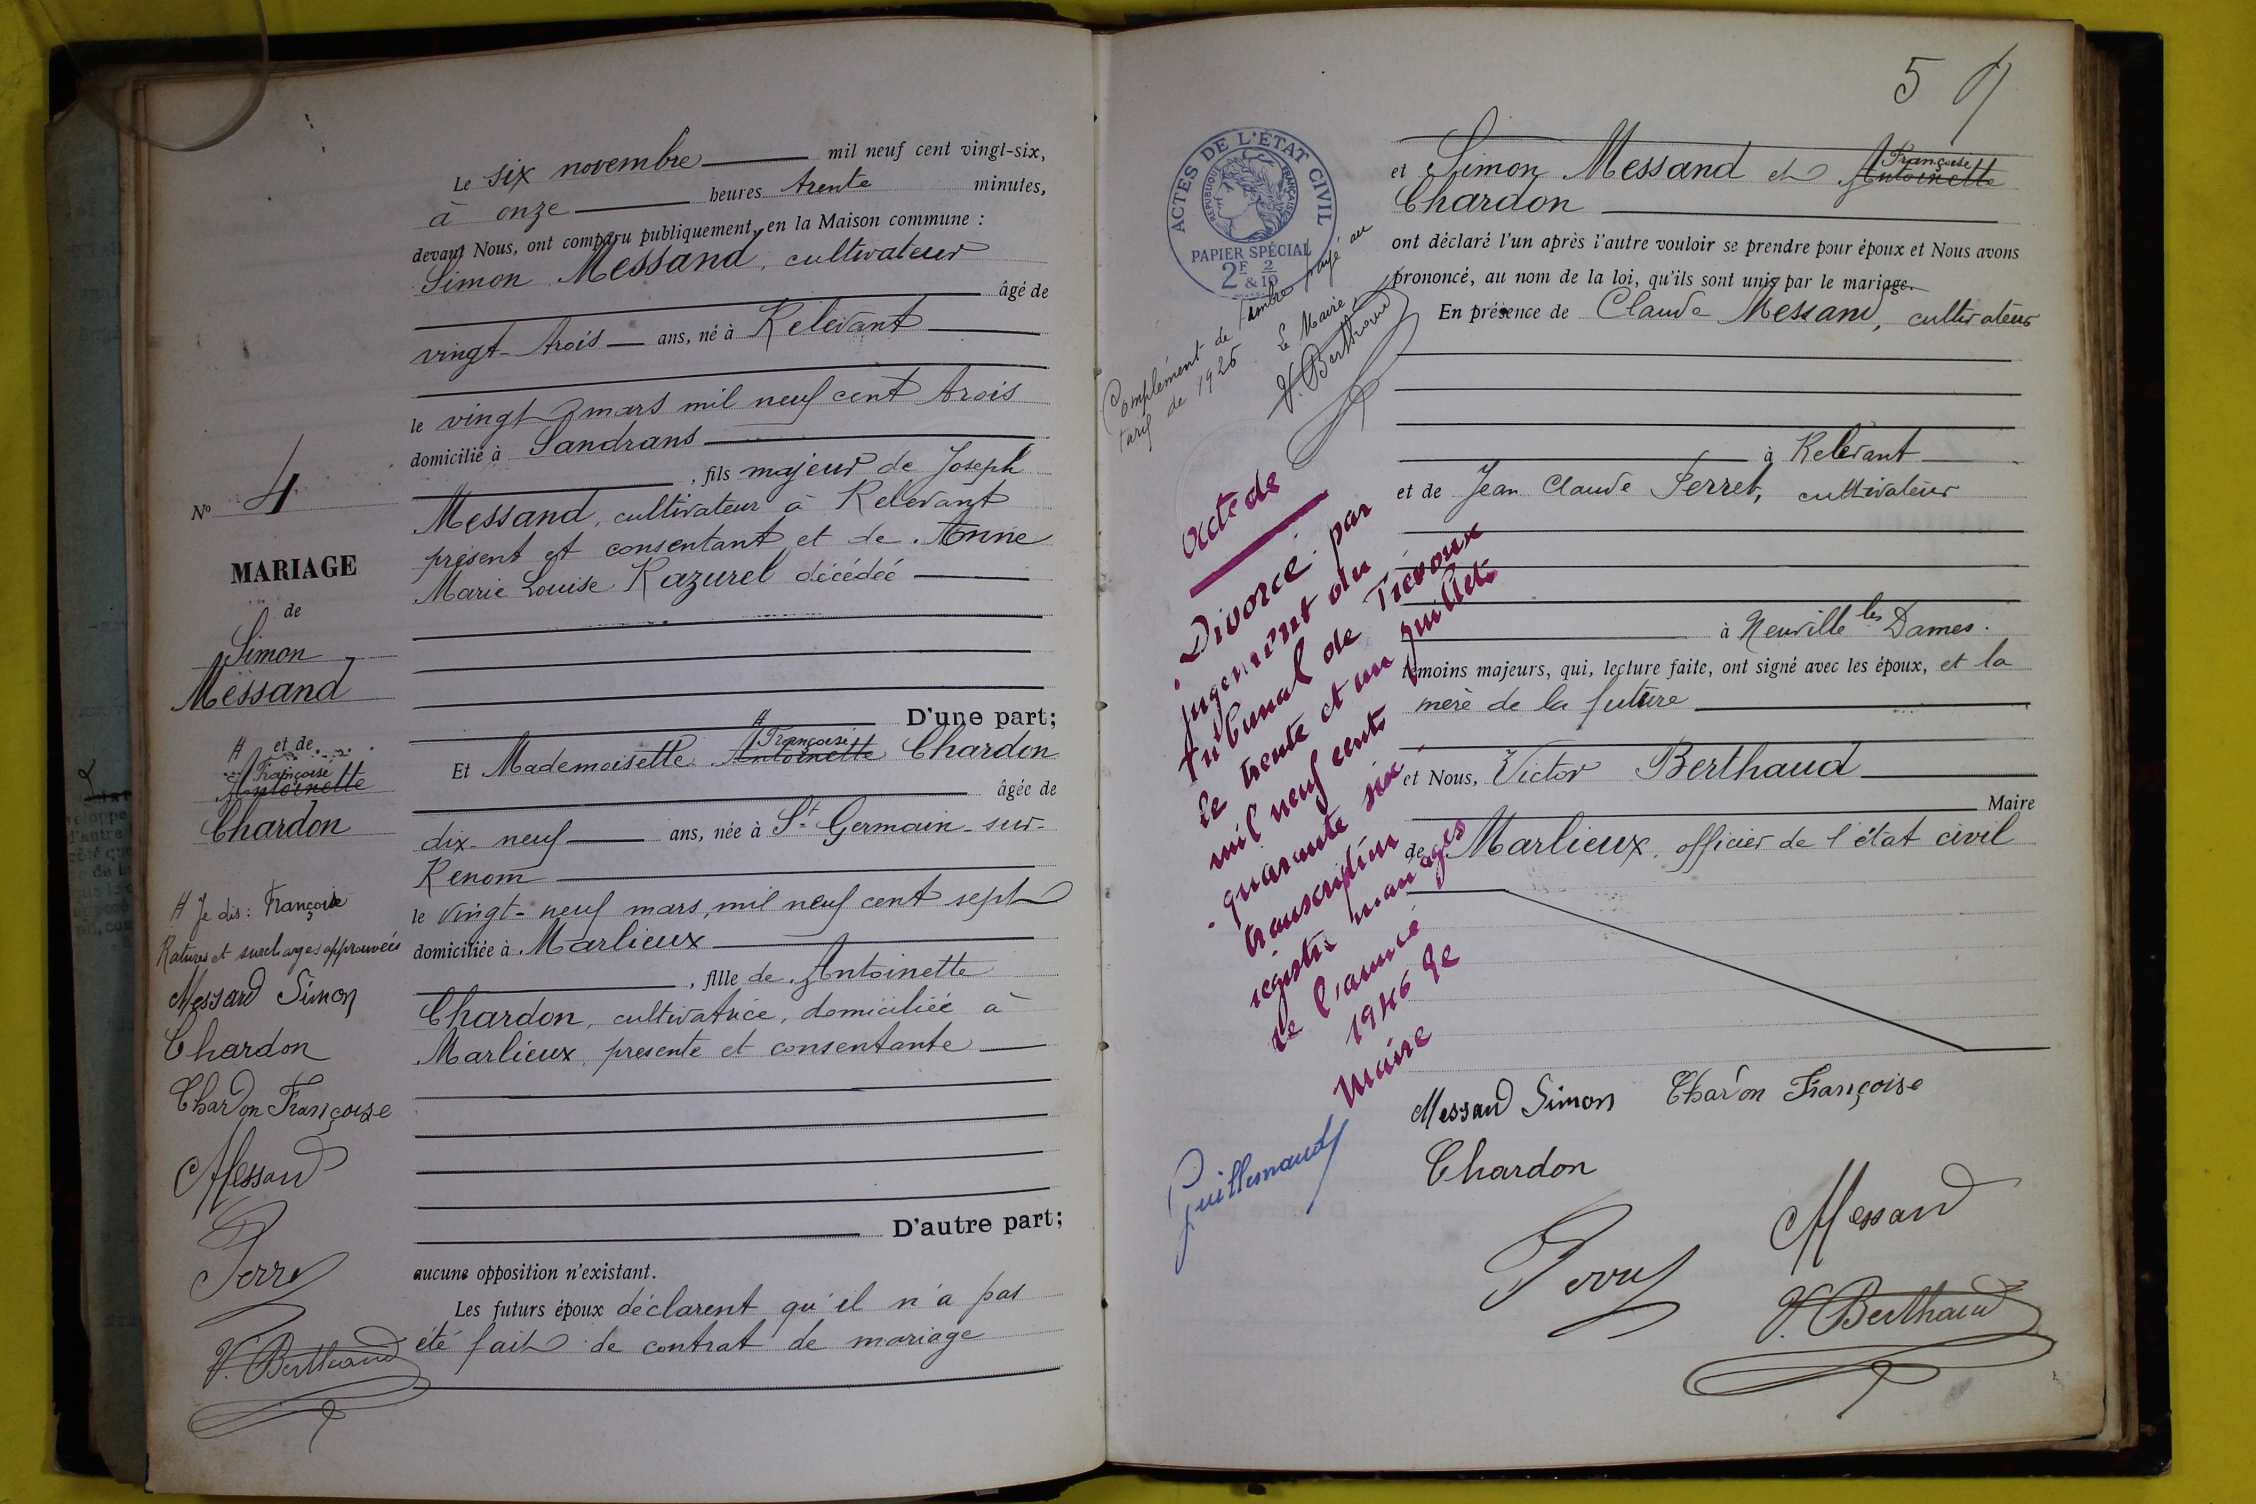 Le six novembre mil neuf cent vingt-six,
à onze heures trente minutes,
devant Nous, ont comparu publiquement, en la Maison commune :
Simon Messand, cultivateur
âgé de
vingt-trois ans, né à Relevant
le vingt mars mil neuf cent trois
domicilié à Sandrans
, fils majeur de Joseph
Messand, cultivateur à Relevant
présent et consentant et de Anne
Marie Louise Razurel décédée
D'une part;
Et Mademoiselle # Françoise Antoinette Chardon
âgée de
dix-neuf ans, née à St Germain-sur-
Renom
le vingt-neuf mars, mil neuf cent sept
domiciliée à Marlieux
, fille de Antoinette
Chardon, cultivatrice, domiciliée à
Marlieux, présente et consentante
D'autre part;
aucune opposition n'existant.
Les futurs époux déclarent qu'il n'a pas
été fait de contrat de mariage
N° 4
MARIAGE
de
Simon
Messand
# et de
Françoise
Antoinette
Chardon
# Je dis : Françoise
Ratures et surcharges approuvées
Messand Simon
Chardon
Chardon Françoise
Messand
Perret
V. Berthaud
5
ACTES DE L'ÉTAT CIVIL
RÉPUBLIQUE FRANÇAISE
PAPIER SPÉCIAL
2F & 2/10
Complément de timbre payé au
tarif de 1926 Le Maire
V. Berthaud
Acte de
Divorcé par
jugement du
tribunal de Trévoux
le trente et un juillet
mil neuf cents
quarante six.
transcription
registre mariages
de l'année
1946 Le
Maire
Guillemaud
et Simon Messand et # Françoise Antoinette
Chardon
ont déclaré l'un après l'autre vouloir se prendre pour époux et Nous avons
prononcé, au nom de la loi, qu'ils sont unis par le mariage.
En présence de Claude Messand, cultivateur
à Relevant
et de Jean Claude Perret, cultivateur
à Neuville les Dames.
témoins majeurs, qui, lecture faite, ont signé avec les époux, et la
mère de la future
et Nous, Victor Berthaud
Maire
de Marlieux, officier de l'état civil
Messand Simon Chardon Françoise
Chardon
Messand
Perret
V. Berthaud